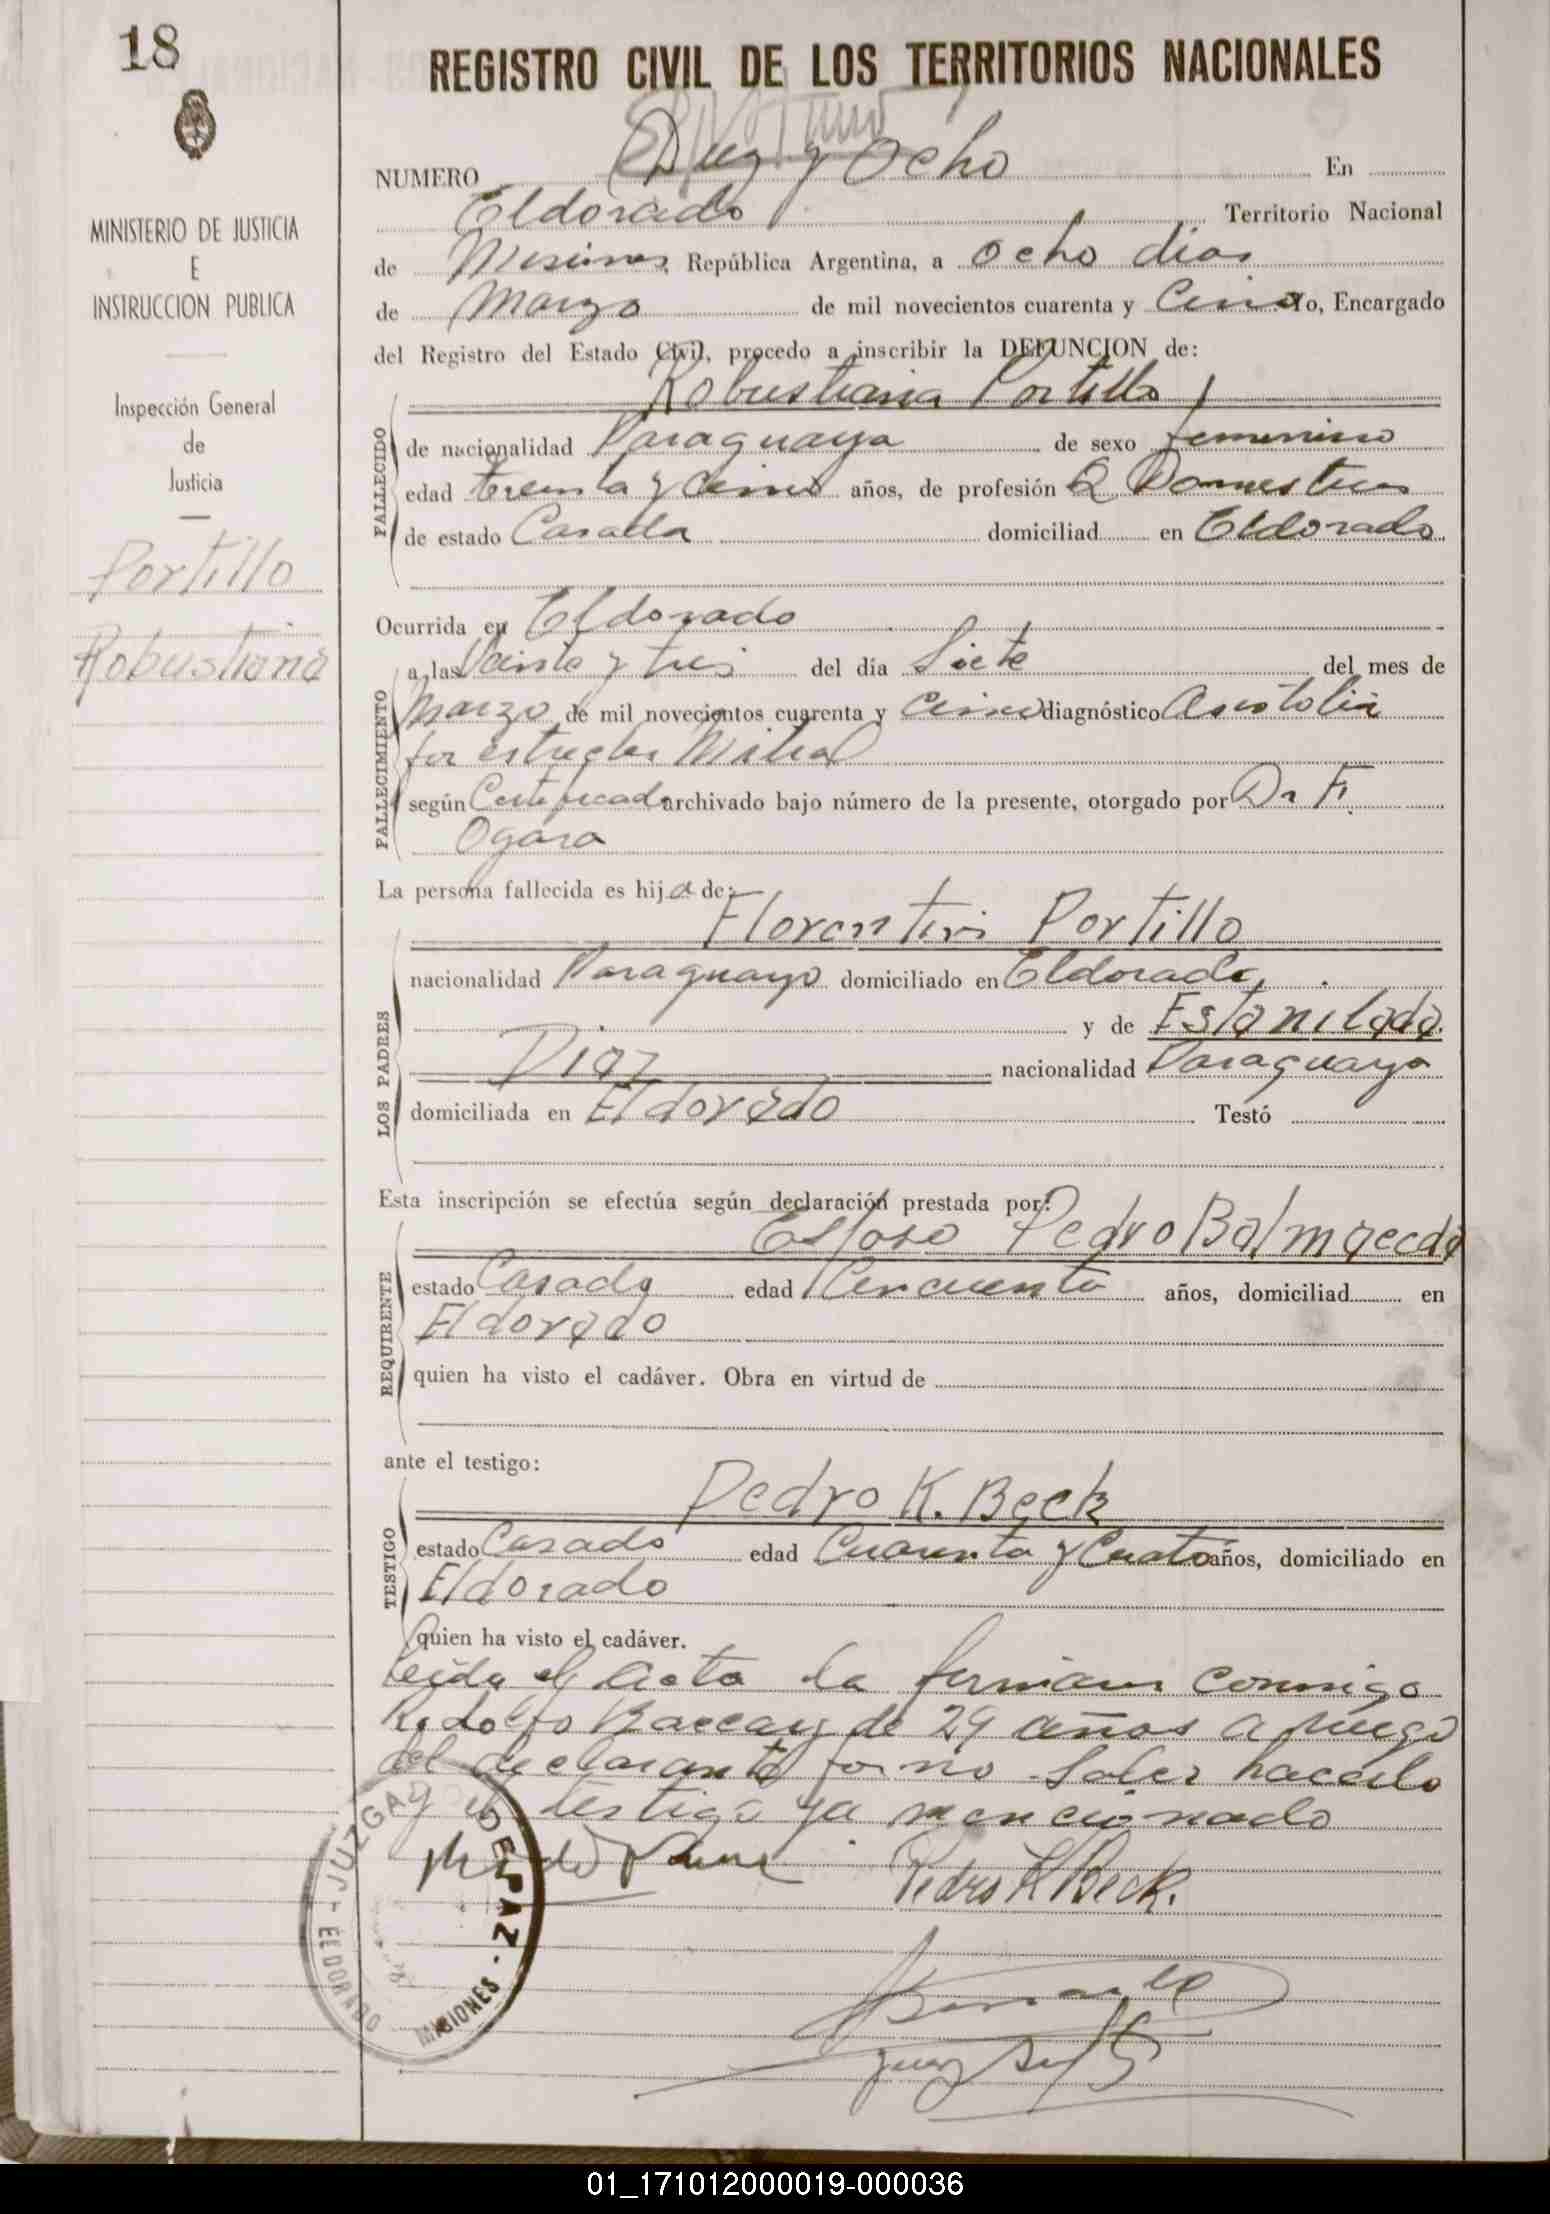 18
REGISTRO CIVIL DE LOS TERRITORIOS NACIONALES
MINISTERIO DE JUSTICIA
E
INSTRUCCION PUBLICA
Inspección General
de
Justicia
Portillo
Robustiana
NUMERO Diez y Ocho En
Eldorado Territorio Nacional
de Misiones República Argentina, a ocho dias
de Marzo de mil novecientos cuarenta y Cinco Yo, Encargado
del Registro del Estado Civil, procedo a inscribir la DEFUNCION de:
Robustiana Portillo
FALLECIDO
de nacionalidad Paraguaya de sexo femenino
edad treinta y Cinco años, de profesión Q Domesticos
de estado Casada domiciliad en Eldorado
Ocurrida en Eldorado
FALLECIMIENTO
a las Veinte y tres del día Siete del mes de
Marzo de mil novecientos cuarenta y Cinco diagnóstico Asistolia
por estreches Mitral
según Certificado archivado bajo número de la presente, otorgado por Dr F.
Ogara
La persona fallecida es hija de:
Florentin Portillo
LOS PADRES
nacionalidad Paraguayo domiciliado en Eldorado
y de Estanilada
Diaz nacionalidad Paraguaya
domiciliada en Eldorado Testó
Esta inscripción se efectúa según declaración prestada por:
Esposo Pedro Balmaceda
REQUIRENTE
estado Casado edad Cincuenta años, domiciliad en
Eldorado
quien ha visto el cadáver. Obra en virtud de
ante el testigo:
Pedro K. Beck
TESTIGO
estado Casado edad Cuarenta y Cuatro años, domiciliado en
Eldorado
quien ha visto el cadáver.
Leida el Acta la firman conmigo
Rodolfo de 29 años a ruego
del declarante por no saber hacerlo
y el testigo ya mencionado
Pedro K Beck.
JUZGADO DE PAZ - MISIONES
ELDORADO
01_171012000019-000036